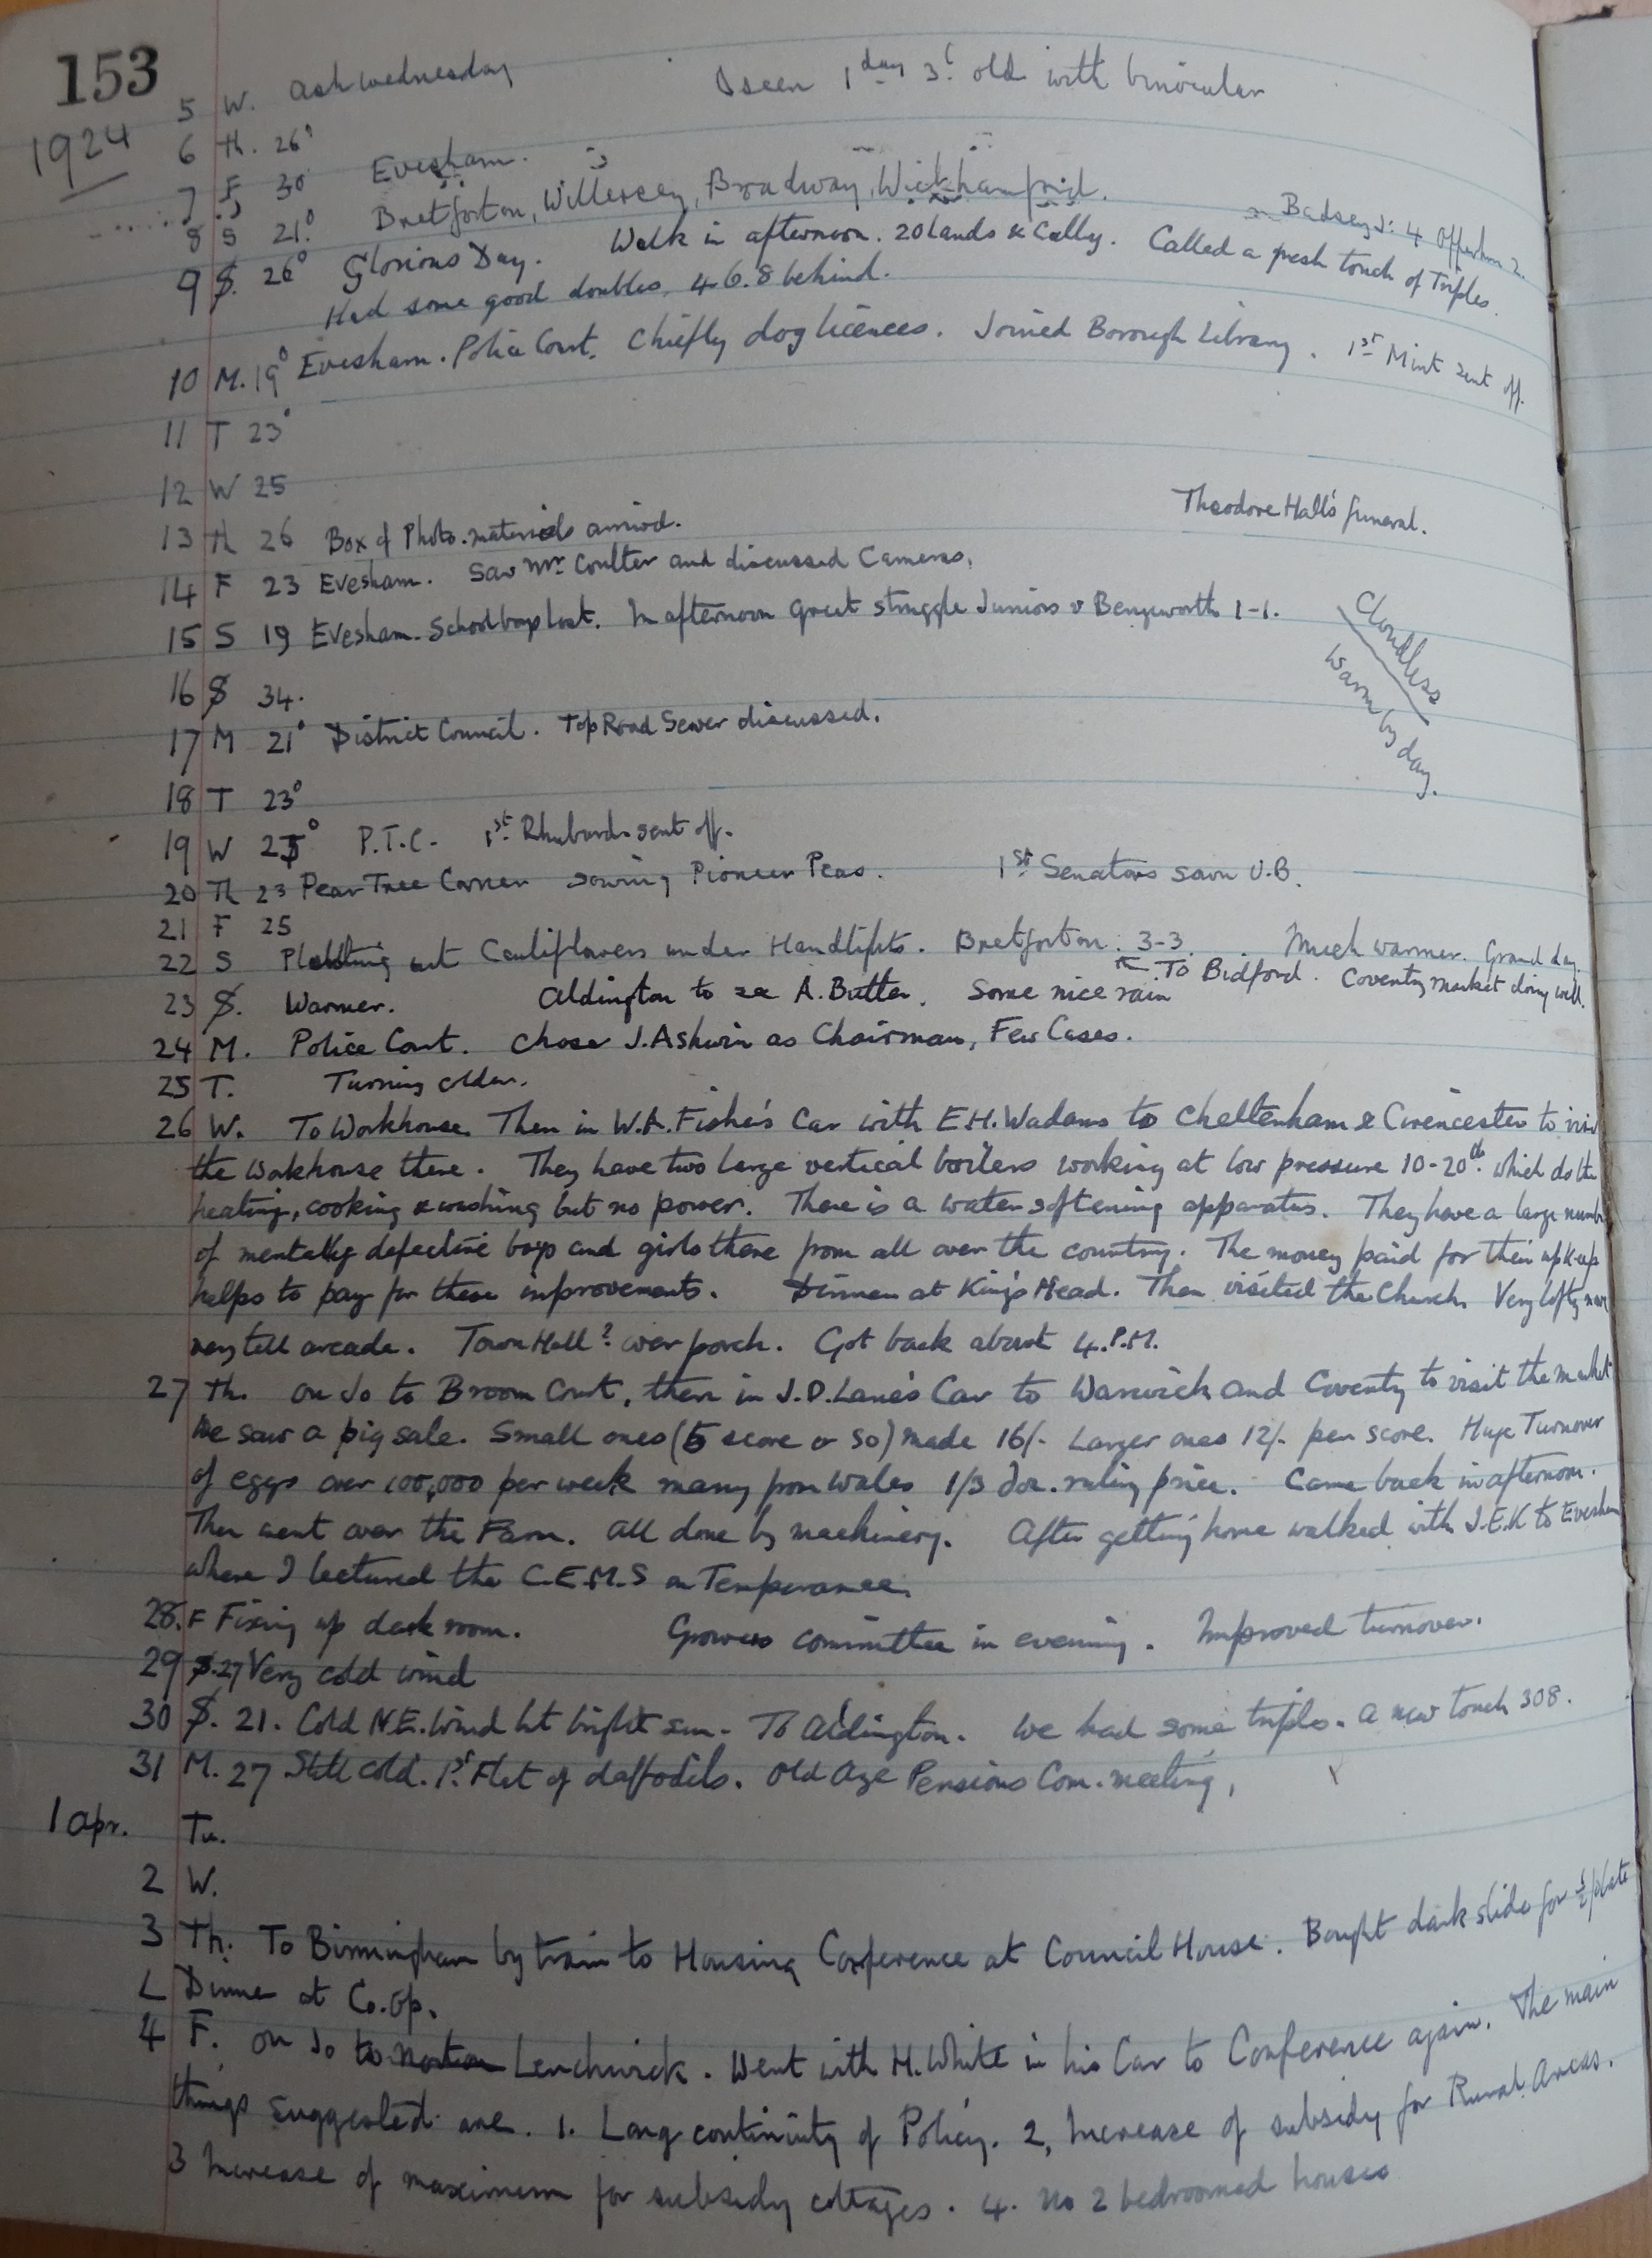 153
1924
5 W. Ash Wednesday seen 1 day 3 old with binocular
6 Th. 26°
7 F 30 Evesham.
8 S 21° Bretforton, Willersey, Broadway, Wickhamford. Badsey J: 4 Offenham 2.
9 S. 26° Glorious Day. Walk in afternoon. 20 Lands & Colley. Called a fresh touch of Triples.
Had some good doubles, 4.6.8 behind.
10 M. 19° Evesham. Police Court. Chiefly dog licences. Joined Borough Library. 1st Mint sent off.
11 T 23°
12 W 25
13 Th 26 Box of Photo. materials arrived. Theodore Hall's funeral.
14 F 23 Evesham. Saw Mr Coulter and discussed Cameras.
15 S 19 Evesham. Schoolboys lost. In afternoon great struggle Juniors v Bengeworth 1-1.
Cloudless
Warm by day.
16 S 34.
17 M 21° District Council. Top Road Sewer discussed.
18 T 23°
19 W 23° P.T.C. 1st Rhubarb sent off.
20 Th 23 Pear Tree Corner sowing Pioneer Peas. 1st Senators sown U.B.
21 F 25
22 S Planting out Cauliflowers under Handlights. Bretforton. 3-3. Much warmer. Grand day.
23 S. Warmer. Aldington to see A. Butler. Some nice rain To Bidford. Coventry market doing well.
24 M. Police Court. Chose J. Ashwin as Chairman, Few Cases.
25 T. Turning colder.
26 W. To Workhouse. Then in W.A. Fisher's Car with E.H. Wadams to Cheltenham & Cirencester to visit
the workhouse there. They have two large vertical boilers working at low pressure 10-20 lb. which do the
heating, cooking & washing but no power. There is a water softening apparatus. They have a large number
of mentally defective boys and girls there from all over the country. The money paid for their upkeep
helps to pay for these improvements. Dinner at King's Head. Then visited the Church. Very lofty nave
very tall arcade. Town Hall? over porch. Got back about 4.P.M.
27 Th. On Jo to Broom Court, then in J.D. Lane's Car to Warwick and Coventry to visit the market
We saw a pig sale. Small ones (5 score or so) made 16/- Larger ones 12/- per score. Huge Turnover
of eggs over 100,000 per week many from Wales 1/3 doz. ruling price. Came back in afternoon.
Then went over the Farm. All done by machinery. After getting home walked with J.E.K to Evesham
where I lectured the C.E.M.S on Temperance.
28. F Fixing up dark room. Growers committee in evening. Improved turnover.
29 S. 27 Very cold wind
30 S. 21. Cold N.E. Wind but bright sun. To Aldington. We had some triples. A new touch 308.
31 M. 27 Still cold. 1st Flat of daffodils. Old Age Pensions Com. meeting.
1 Apr. Tu.
2 W.
3 Th. To Birmingham by train to Housing Conference at Council House. Bought dark slide for 1/2 plate
Dinner at Co.op.
4 F. On Jo to Norton Lenchwick. Went with H. White in his Car to Conference again. The main
things suggested are. 1. Long continuity of Policy. 2, Increase of subsidy for Rural Areas.
3 Increase of maximum for subsidy cottages. 4. No 2 bedroomed houses